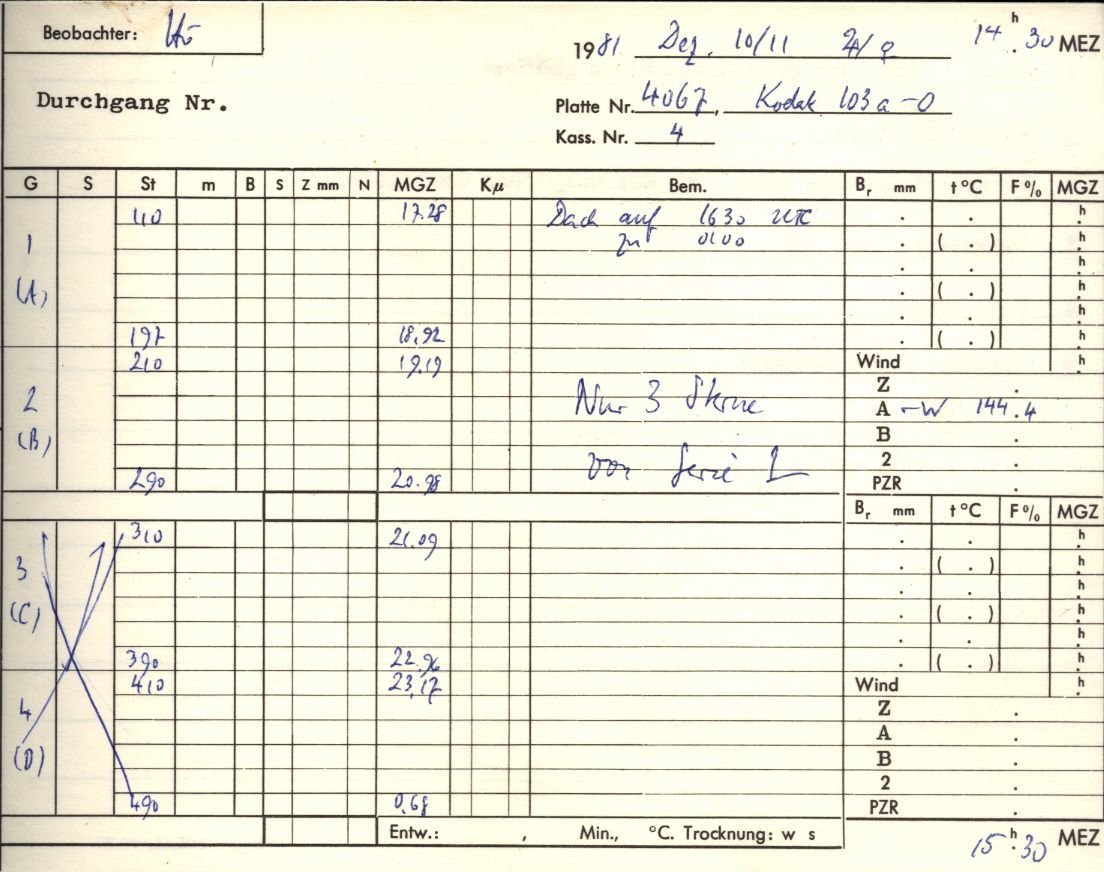 Beobachter: Hö
1981 Dez. 10/11 ♃/♀ 14 h . 30 MEZ
Durchgang Nr.
Platte Nr. 4067, Kodak 103a-O
Kass. Nr. 4
G S St m B S Z mm N MGZ Kμ Bem. Br mm t °C F% MGZ
110 17.28 Dach auf 1630 UTC . . h.
1 zu 0100 . ( . ) h.
. . h.
(A) . ( . ) h.
. . h.
197 18,92 . ( . ) h.
210 19,19 Wind h.
Z .
2 Nur 3 Sterne A -W 144.4
(B) B .
von Serie 1 2 .
290 20.98 PZR .
Br mm t °C F% MGZ
310 21.09 . . h.
3 . ( . ) h.
. . h.
(C) . ( . ) h.
. . h.
390 22.96 . ( . ) h.
410 23,17 Wind h.
4 Z .
A .
(D) B .
2 .
490 0,68 PZR .
Entw.: , Min., °C. Trocknung: w s
15 h . 30 MEZ